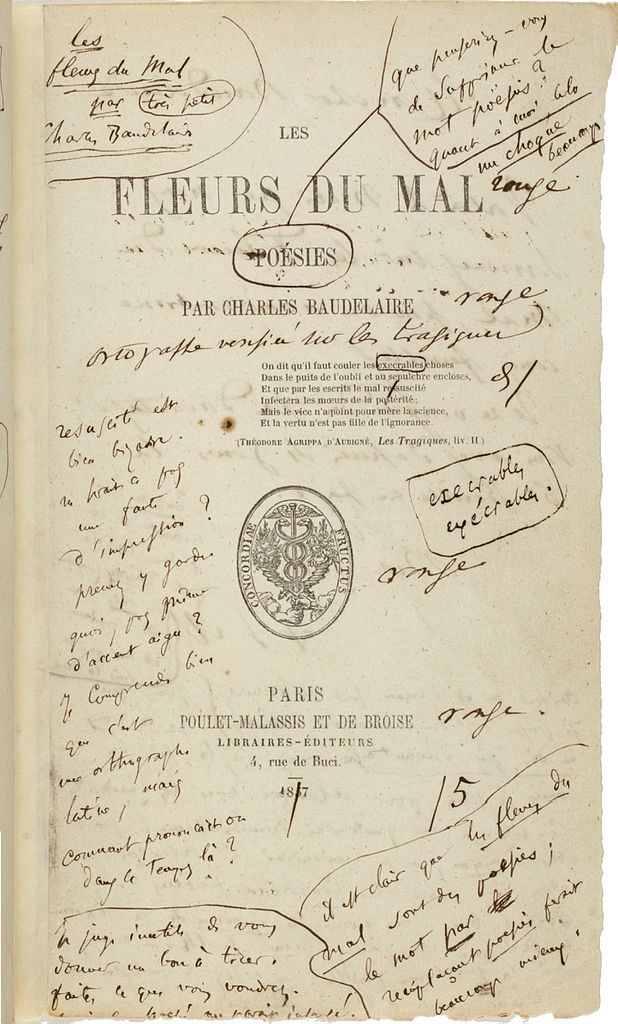 les
fleurs du Mal
par très petit
Charles Baudelaire
que penseriez-vous
de supprimer le
mot poésies ?
quant à moi cela
me choque
beaucoup
LES
FLEURS DU MAL
rouge
POÉSIES
PAR CHARLES BAUDELAIRE
rouge
ortografe verifiée sur les tragiques
On dit qu'il faut couler les execrables choses
Dans le puits de l'oubli et au sepulchre encloses,
Et que par les escrits le mal resuscité
Infectera les mœurs de la postérité;
Mais le vice n'a point pour mère la science,
Et la vertu n'est pas fille de l'ignorance.
(THÉODORE AGRIPPA D'AUBIGNÉ, Les Tragiques, liv. II)
resuscité est
bien bizarre.
n'y aurait-il pas
une faute
d'impression ?
prenez y garde
quoi, pas même
d'accent aigu ?
Je comprends bien
que c'est
une orthographe
latine, mais
comment prononçait-on
dans le temps là ?
execrables
exécrables.
CONCORDIAE FRUCTUS
rouge
PARIS
POULET-MALASSIS ET DE BROISE
rouge.
LIBRAIRES-ÉDITEURS
4, rue de Buci.
1857
/5
il est clair que les fleurs du
mal sont des poésies ;
le mot par
remplaçant poésies ferait
beaucoup mieux.
Je juge inutile de vous
donner un bon à tirer.
faites ce que vous voudrez.